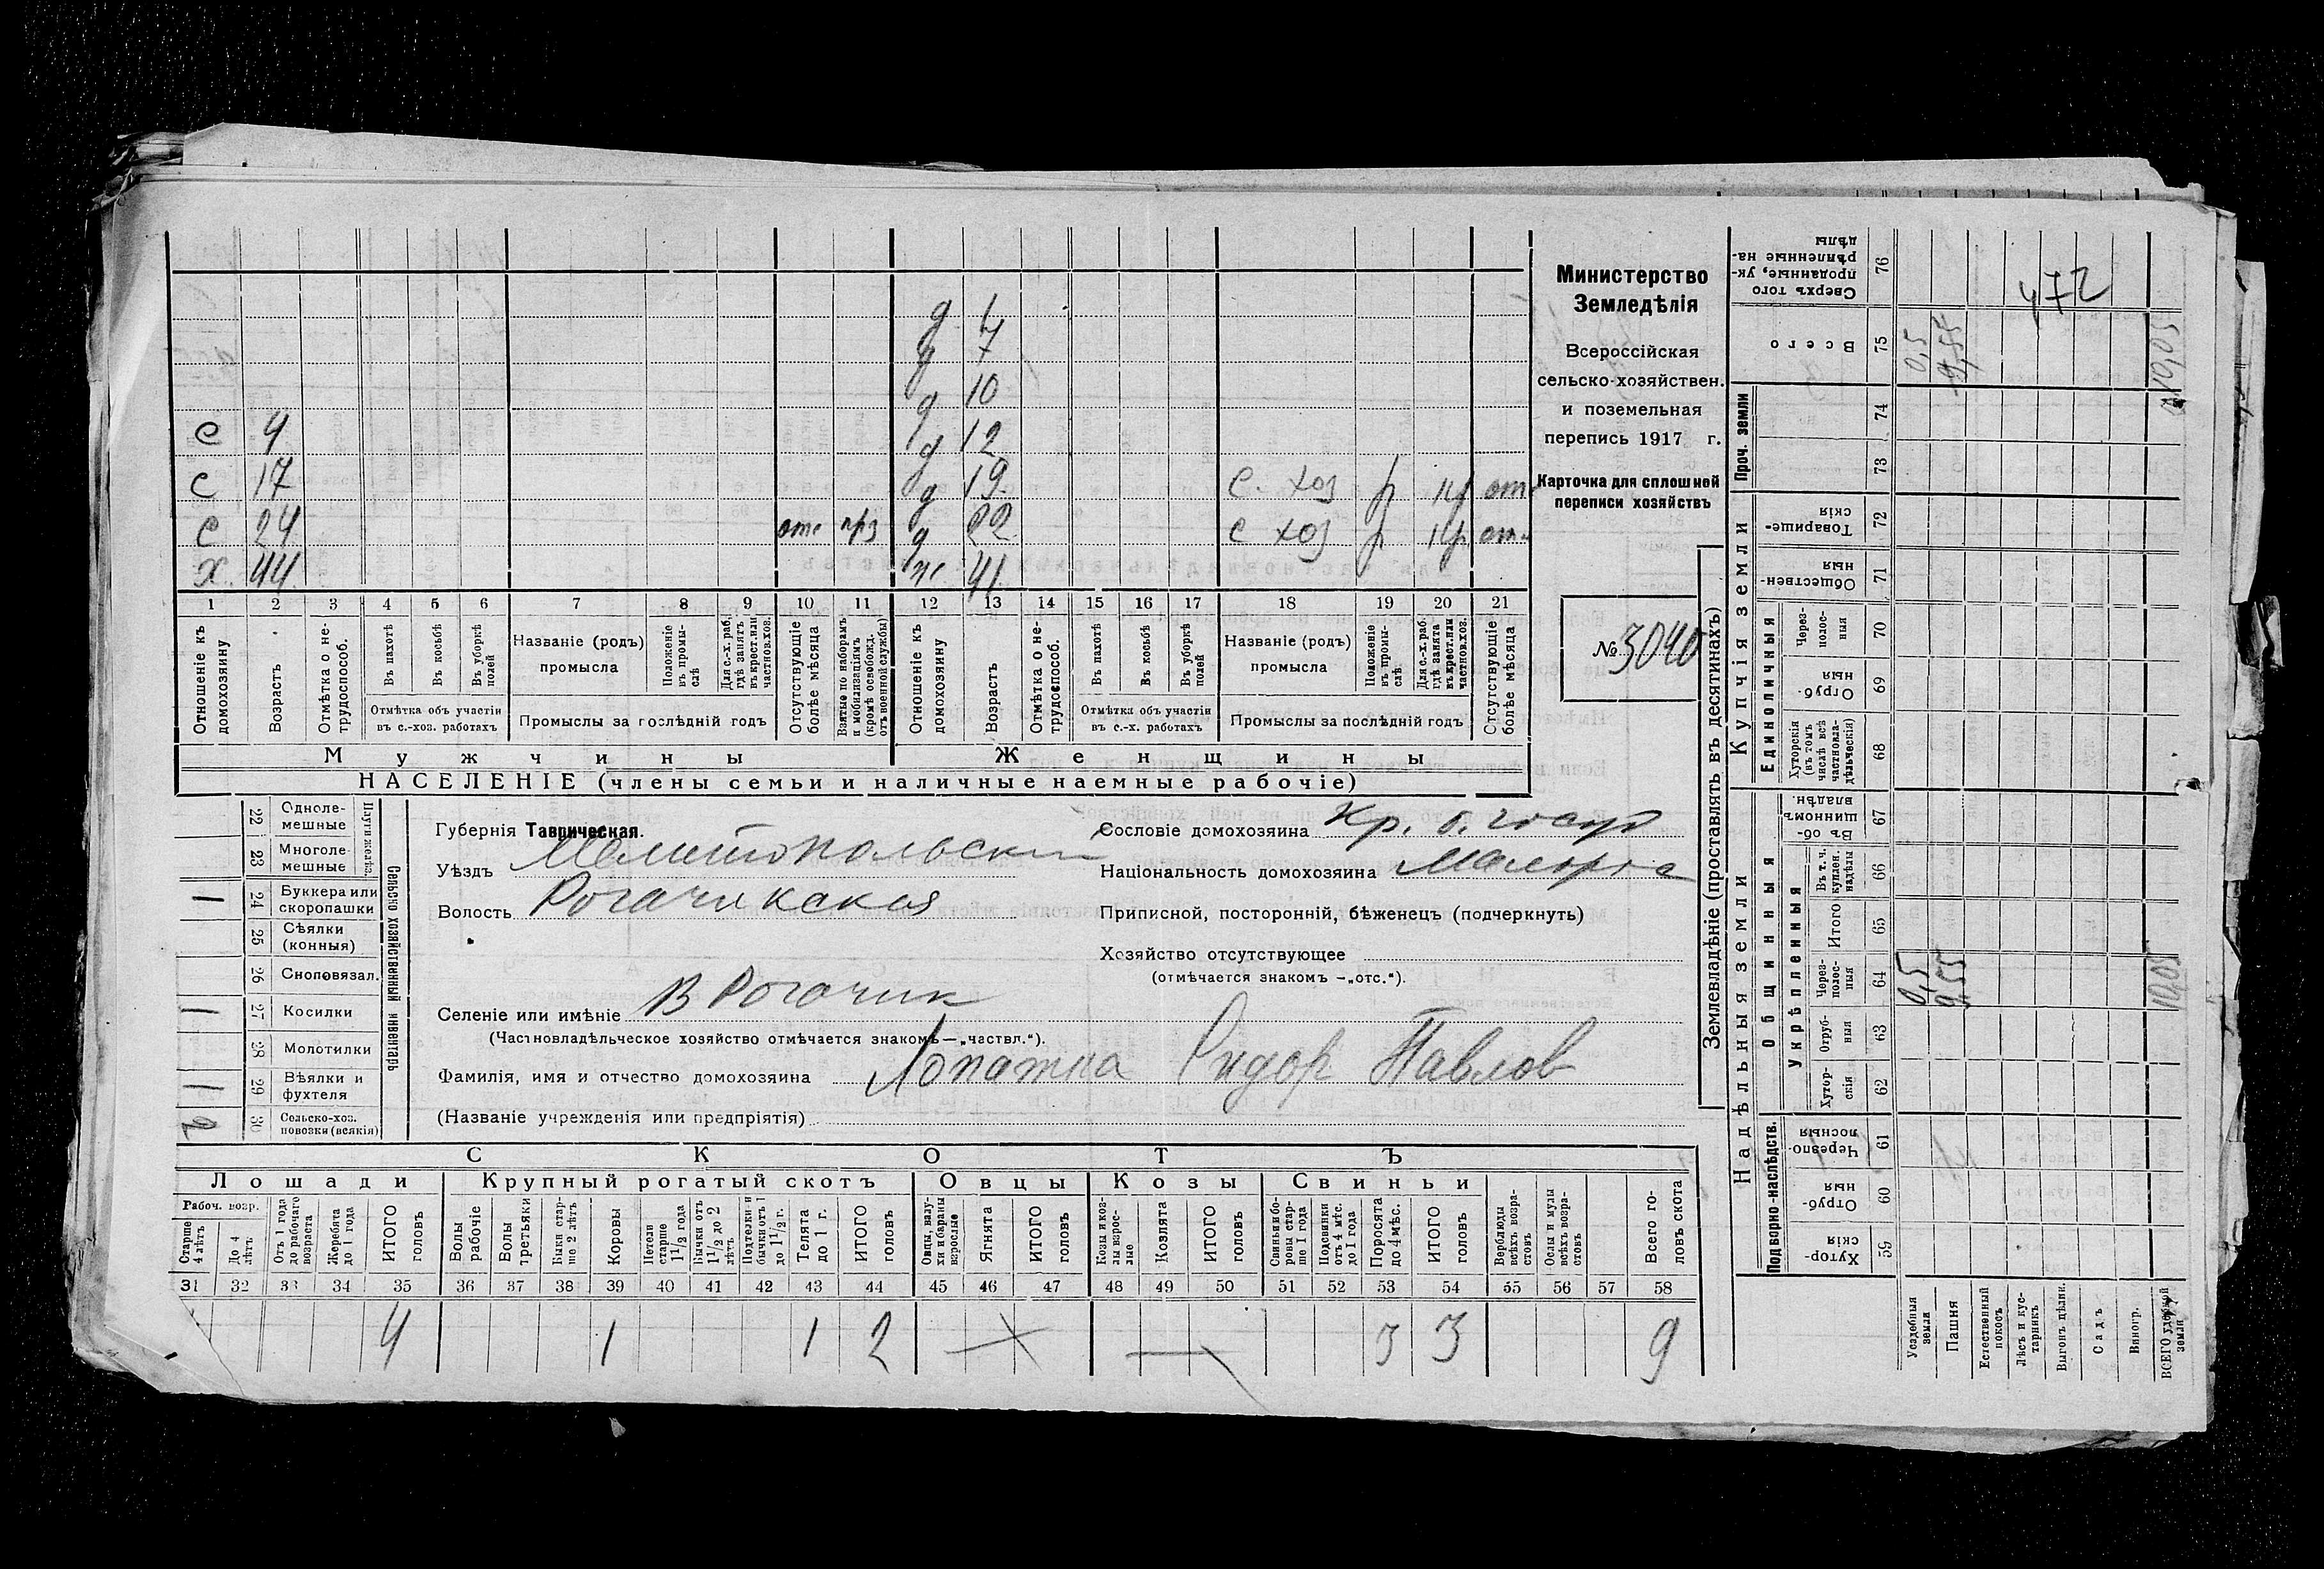 Министерство
Земледѣлія
Всероссійская
сельско-хозяйствен.
и поземельная
перепись 1917 г.
Карточка для сплошной
переписи хозяйствъ
№ 3040
д 1
д 7
д 10
с 4 д 12
с 17 д 19 с. хоз р кр отс
с 24 отс прз д 22 с хоз р кр отс
х 44 ж 41
1 2 3 4 5 6 7 8 9 10 11 12 13 14 15 16 17 18 19 20 21
Отношеніе къ домохозяину
Возрастъ
Отмѣтка о нетрудоспособ.
Въ пахотѣ
Въ косьбѣ
Въ уборкѣ полей
Отмѣтка объ участіи въ с.-хоз. работахъ
Названіе (родъ) промысла
Положеніе въ промыслѣ
Для с.-х. раб. гдѣ занятъ въ крест. или частнов. хоз.
Промыслы за послѣдній годъ
Отсутствующіе болѣе мѣсяца
Взятые по наборамъ и мобилизаціямъ (кромѣ освобожд. отъ военной службы)
Отношеніе къ домохозяину
Возрастъ
Отмѣтка о нетрудоспособ.
Въ пахотѣ
Въ косьбѣ
Въ уборкѣ полей
Отмѣтка объ участіи въ с.-х. работахъ
Названіе (родъ) промысла
Положеніе въ промыслѣ
Для с.-х. раб. гдѣ занята въ крест. или частнов. хоз.
Промыслы за послѣдній годъ
Отсутствующіе болѣе мѣсяца
Мужчины Женщины
НАСЕЛЕНІЕ (члены семьи и наличные наемные рабочіе)
Сельско хозяйственный инвентарь
Плуги желѣз.
22 Однолемешные
23 Многолемешные
1 24 Буккера или скоропашки
25 Сѣялки (конныя)
26 Сноповязал.
1 27 Косилки
28 Молотилки
1 29 Вѣялки и фухтеля
2 30 Сельско-хоз. повозки (всякія)
Губернія Таврическая.
Уѣздъ Мелитопольский
Волость Рогачикская
Селеніе или имѣніе В Рогачик
(Частновладѣльческое хозяйство отмѣчается знакомъ—„частвл.“).
Фамилія, имя и отчество домохозяина Лопатка Сидор Павлов
(Названіе учрежденія или предпріятія)
Сословіе домохозяина Кр. б. госуд
Національность домохозяина Малорос
Приписной, посторонній, бѣженецъ (подчеркнуть)
Хозяйство отсутствующее
(отмѣчается знакомъ -„отс.“).
СКОТЪ
Лошади Крупный рогатый скотъ Овцы Козы Свиньи
Рабоч. возр.
Старше 4 лѣтъ
До 4 лѣтъ
Отъ 1 года до рабочаго возраста
Жеребята до 1 года
ИТОГО головъ
Волы рабочіе
Волы третьяки
Быки старше 2 лѣтъ
Коровы
Нетели старше 1 1/2 года
Бычки отъ 1 1/2 до 2 лѣтъ
Подтелки и бычки отъ 1 до 1 1/2 г.
Телята до 1 г.
ИТОГО головъ
Овцы, валухи и бараны взрослые
Ягнята
ИТОГО головъ
Козы и козлы взрослые
Козлята
ИТОГО головъ
Свиньи и боровы старше 1 года
Подсвинки отъ 4 мѣс. до 1 года
Поросята до 4 мѣс.
ИТОГО головъ
Верблюды всѣхъ возрастовъ
Ослы и мулы всѣхъ возрастовъ
Всего головъ скота
31 32 33 34 35 36 37 38 39 40 41 42 43 44 45 46 47 48 49 50 51 52 53 54 55 56 57 58
4 1 1 2 3 3 9
Землевладѣніе (проставлять въ десятинахъ)
Надѣльныя земли Купчія земли Проч. земли
Подворно-наслѣдств.
Общинныя
Укрѣпленныя
Единоличныя
Хуторскія 59
Отрубныя 60
Черезполосныя 61
Хуторскія 62
Отрубныя 63
Черезполосныя 64
Итого 65
Въ т. ч. куплен. надѣлы 66
Въ общинномъ владѣн. 67
Хуторскія (въ томъ числѣ всѣ частновладѣльческія) 68
Отрубныя 69
Черезполосныя 70
Общественныя 71
Товарищескія 72
73
74
Всего 75
Сверхъ того проданные, укрѣпленные надѣлы 76
Усадебная земля 0,5 0,5
Пашня 9,55 9,55
Естественный покосъ
Лѣсъ и кустарникъ
Выгонъ дѣлян.
Садъ
Виногр.
ВСЕГО удобной земли 10,05 10,05
472